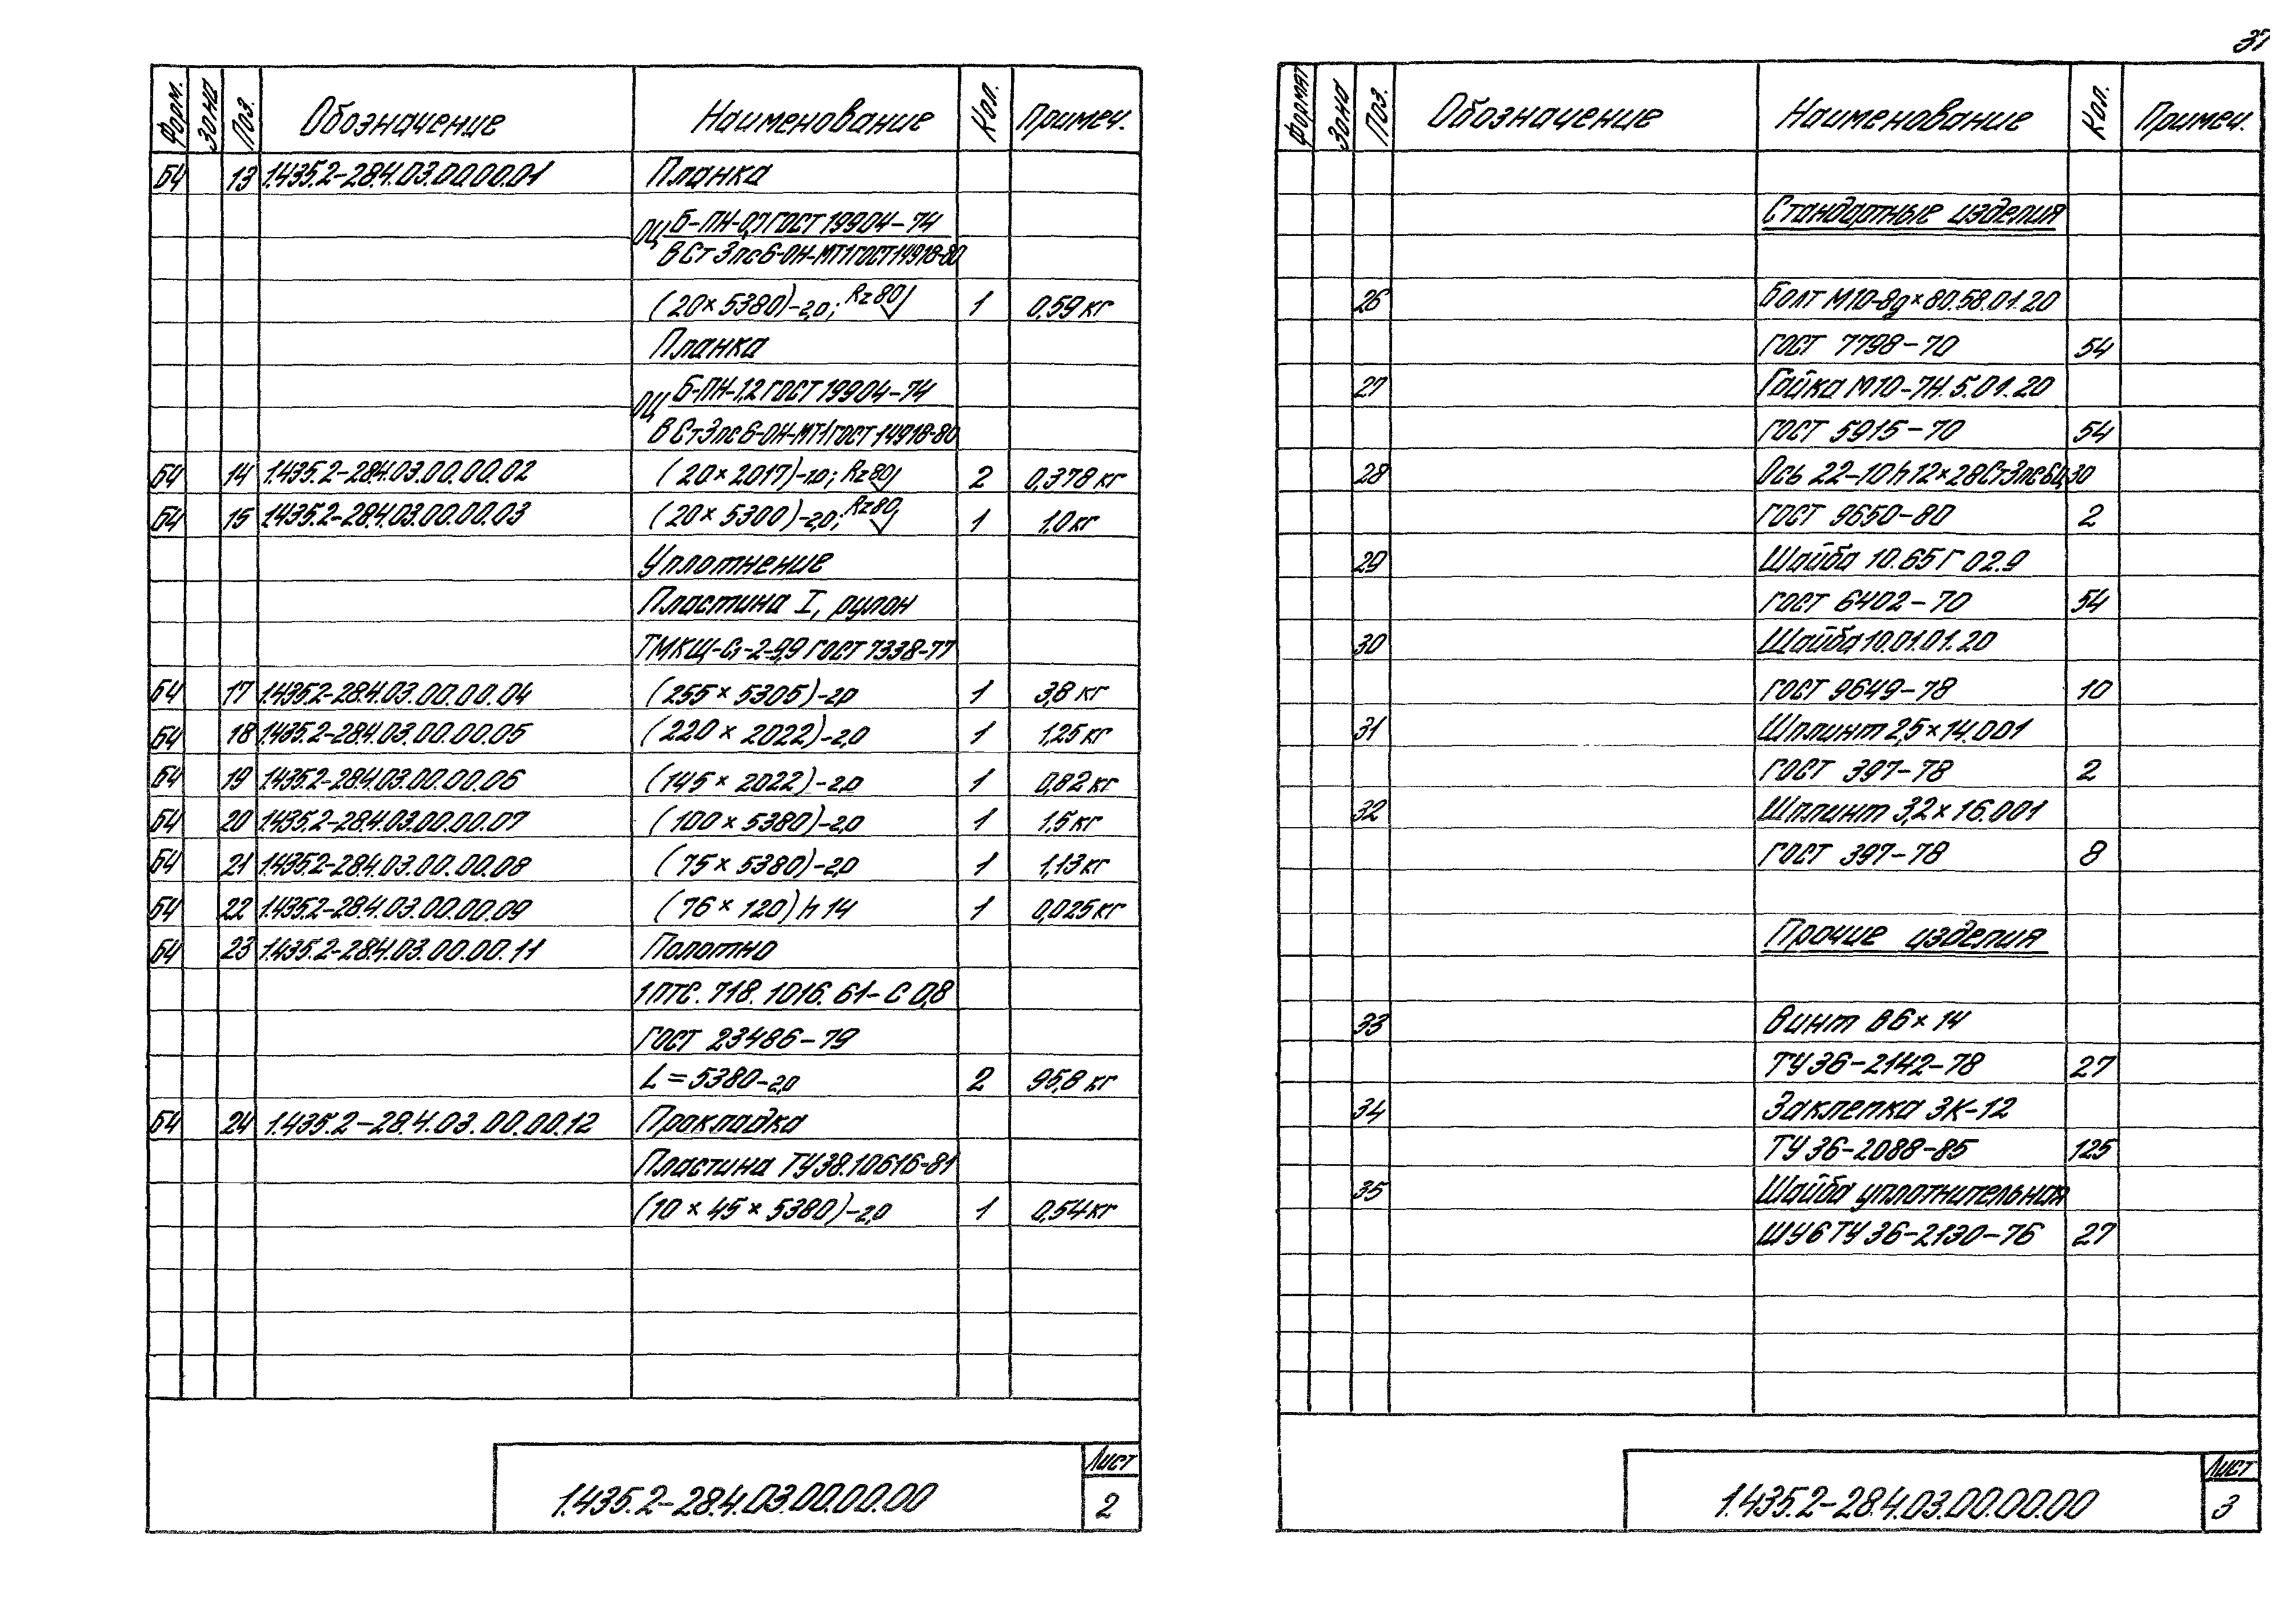 37
Форм. Зона Поз. Обозначение Наименование Кол. Примеч.
БЧ 13 1.435.2-28.4.03.00.00.01 Планка
ОЦ Б-ПН-0,7 ГОСТ 19904-74
ВСт3пс6-ОН-МТ1 ГОСТ 14918-80
(20×5380)-2,0; Rz80 1 0,59 кг
Планка
ОЦ Б-ПН-1,2 ГОСТ 19904-74
ВСт3пс6-ОН-МТ1 ГОСТ 14918-80
БЧ 14 1.435.2-28.4.03.00.00.02 (20×2017)-1,0; Rz80 2 0,378 кг
БЧ 15 1.435.2-28.4.03.00.00.03 (20×5300)-2,0; Rz80 1 1,0 кг
Уплотнение
Пластина I, рулон
ТМКЩ-С1-2-9,9 ГОСТ 7338-77
БЧ 17 1.435.2-28.4.03.00.00.04 (255×5305)-2,0 1 3,8 кг
БЧ 18 1.435.2-28.4.03.00.00.05 (220×2022)-2,0 1 1,25 кг
БЧ 19 1.435.2-28.4.03.00.00.06 (145×2022)-2,0 1 0,82 кг
БЧ 20 1.435.2-28.4.03.00.00.07 (100×5380)-2,0 1 1,5 кг
БЧ 21 1.435.2-28.4.03.00.00.08 (75×5380)-2,0 1 1,13 кг
БЧ 22 1.435.2-28.4.03.00.00.09 (76×120) h14 1 0,025 кг
БЧ 23 1.435.2-28.4.03.00.00.11 Полотно
1ПТС. 718. 1016. 61-С 0,8
ГОСТ 23486-79
L=5380-2,0 2 95,8 кг
БЧ 24 1.435.2-28.4.03.00.00.12 Прокладка
Пластина ТУ38.10616-81
(10×45×5380)-2,0 1 0,54 кг
1.435.2-28.4.03.00.00.00
Лист
2
Формат Зона Поз. Обозначение Наименование Кол. Примеч.
Стандартные изделия
26 Болт М10-8g×80.58.01.20
ГОСТ 7798-70 54
27 Гайка М10-7Н.5.01.20
ГОСТ 5915-70 54
28 Ось 22-10h12×28Ст3пс6Ц30
ГОСТ 9650-80 2
29 Шайба 10.65Г 02.9
ГОСТ 6402-70 54
30 Шайба 10.01.01.20
ГОСТ 9649-78 10
31 Шплинт 2,5×14.001
ГОСТ 397-78 2
32 Шплинт 3,2×16.001
ГОСТ 397-78 8
Прочие изделия
33 Винт В6×14
ТУ 36-2142-78 27
34 Заклепка ЗК-12
ТУ 36-2088-85 125
35 Шайба уплотнительная
ШУ6 ТУ 36-2130-76 27
1.435.2-28.4.03.00.00.00
Лист
3